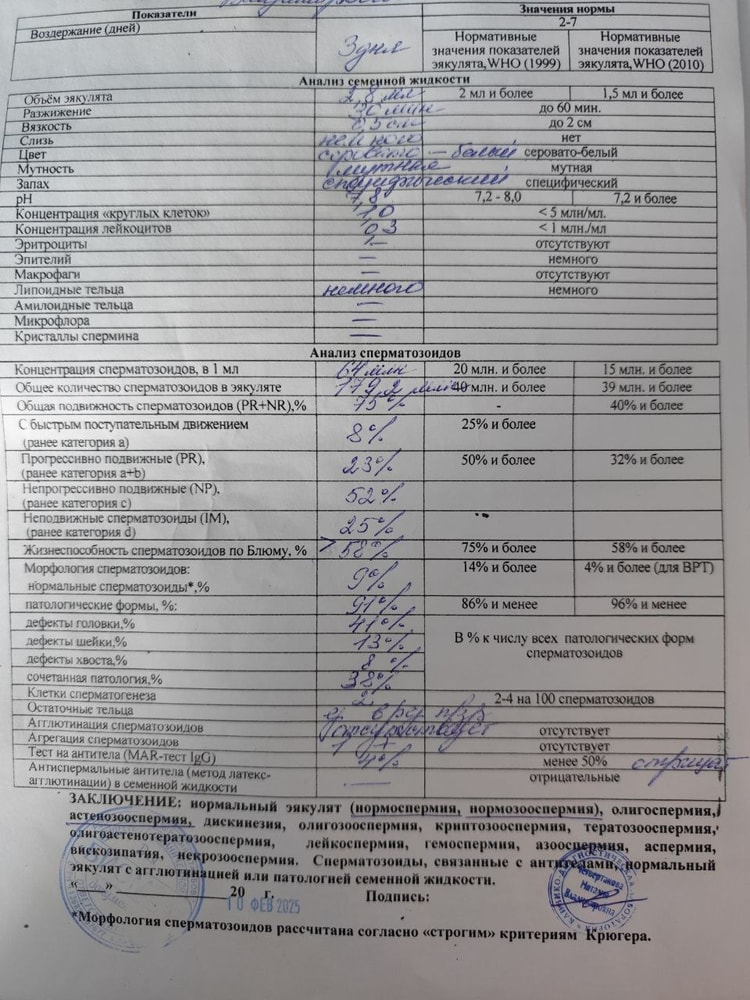 Показатели Значения нормы
Воздержание (дней) 3 дня 2-7
Нормативные значения показателей эякулята, WHO (1999) Нормативные значения показателей эякулята, WHO (2010)
Анализ семенной жидкости
Объём эякулята 2,8 мл 2 мл и более 1,5 мл и более
Разжижение 30 мин. до 60 мин.
Вязкость 0,5 см до 2 см
Слизь немного нет
Цвет серовато-белый серовато-белый
Мутность мутная мутная
Запах специфический специфический
pH 7,8 7,2 - 8,0 7,2 и более
Концентрация «круглых клеток» 1,0 < 5 млн/мл.
Концентрация лейкоцитов 0,3 < 1 млн./мл
Эритроциты — отсутствуют
Эпителий — немного
Макрофаги — отсутствуют
Липоидные тельца немного немного
Амилоидные тельца —
Микрофлора —
Кристаллы спермина —
Анализ сперматозоидов
Концентрация сперматозоидов, в 1 мл 64 млн 20 млн. и более 15 млн. и более
Общее количество сперматозоидов в эякуляте 179,2 млн 40 млн. и более 39 млн. и более
Общая подвижность сперматозоидов (PR+NR),% 75% - 40% и более
С быстрым поступательным движением
(ранее категория a) 8% 25% и более
Прогрессивно подвижные (PR),
(ранее категория a+b) 23% 50% и более 32% и более
Непрогрессивно подвижные (NP),
(ранее категория c) 52%
Неподвижные сперматозоиды (IM),
(ранее категория d) 25%
Жизнеспособность сперматозоидов по Блюму, % > 58% 75% и более 58% и более
Морфология сперматозоидов:
нормальные сперматозоиды*,% 9% 14% и более 4% и более (для ВРТ)
патологические формы, %: 91% 86% и менее 96% и менее
дефекты головки,% 41%
дефекты шейки,% 13% В % к числу всех патологических форм сперматозоидов
дефекты хвоста,% 8%
сочетанная патология,% 38%
Клетки сперматогенеза 2 2-4 на 100 сперматозоидов
Остаточные тельца ед. в
Агглютинация сперматозоидов отсутствует отсутствует
Агрегация сперматозоидов 1 + отсутствует
Тест на антитела (MAR-тест IgG) 4% менее 50% отрицат
Антиспермальные антитела (метод латекс-
агглютинации) в семенной жидкости — отрицательные
ЗАКЛЮЧЕНИЕ: нормальный эякулят (нормоспермия, нормозооспермия), олигоспермия,
астенозооспермия, дискинезия, олигозооспермия, криптозооспермия, тератозооспермия,
олигоастенотератозооспермия, лейкоспермия, гемоспермия, азооспермия, аспермия,
вискозипатия, некрозооспермия. Сперматозоиды, связанные с антителами, нормальный
эякулят с агглютинацией или патологией семенной жидкости.
«___» ____________20 г. Подпись:
10 ФЕВ 2025
*Морфология сперматозоидов рассчитана согласно «строгим» критериям Крюгера.